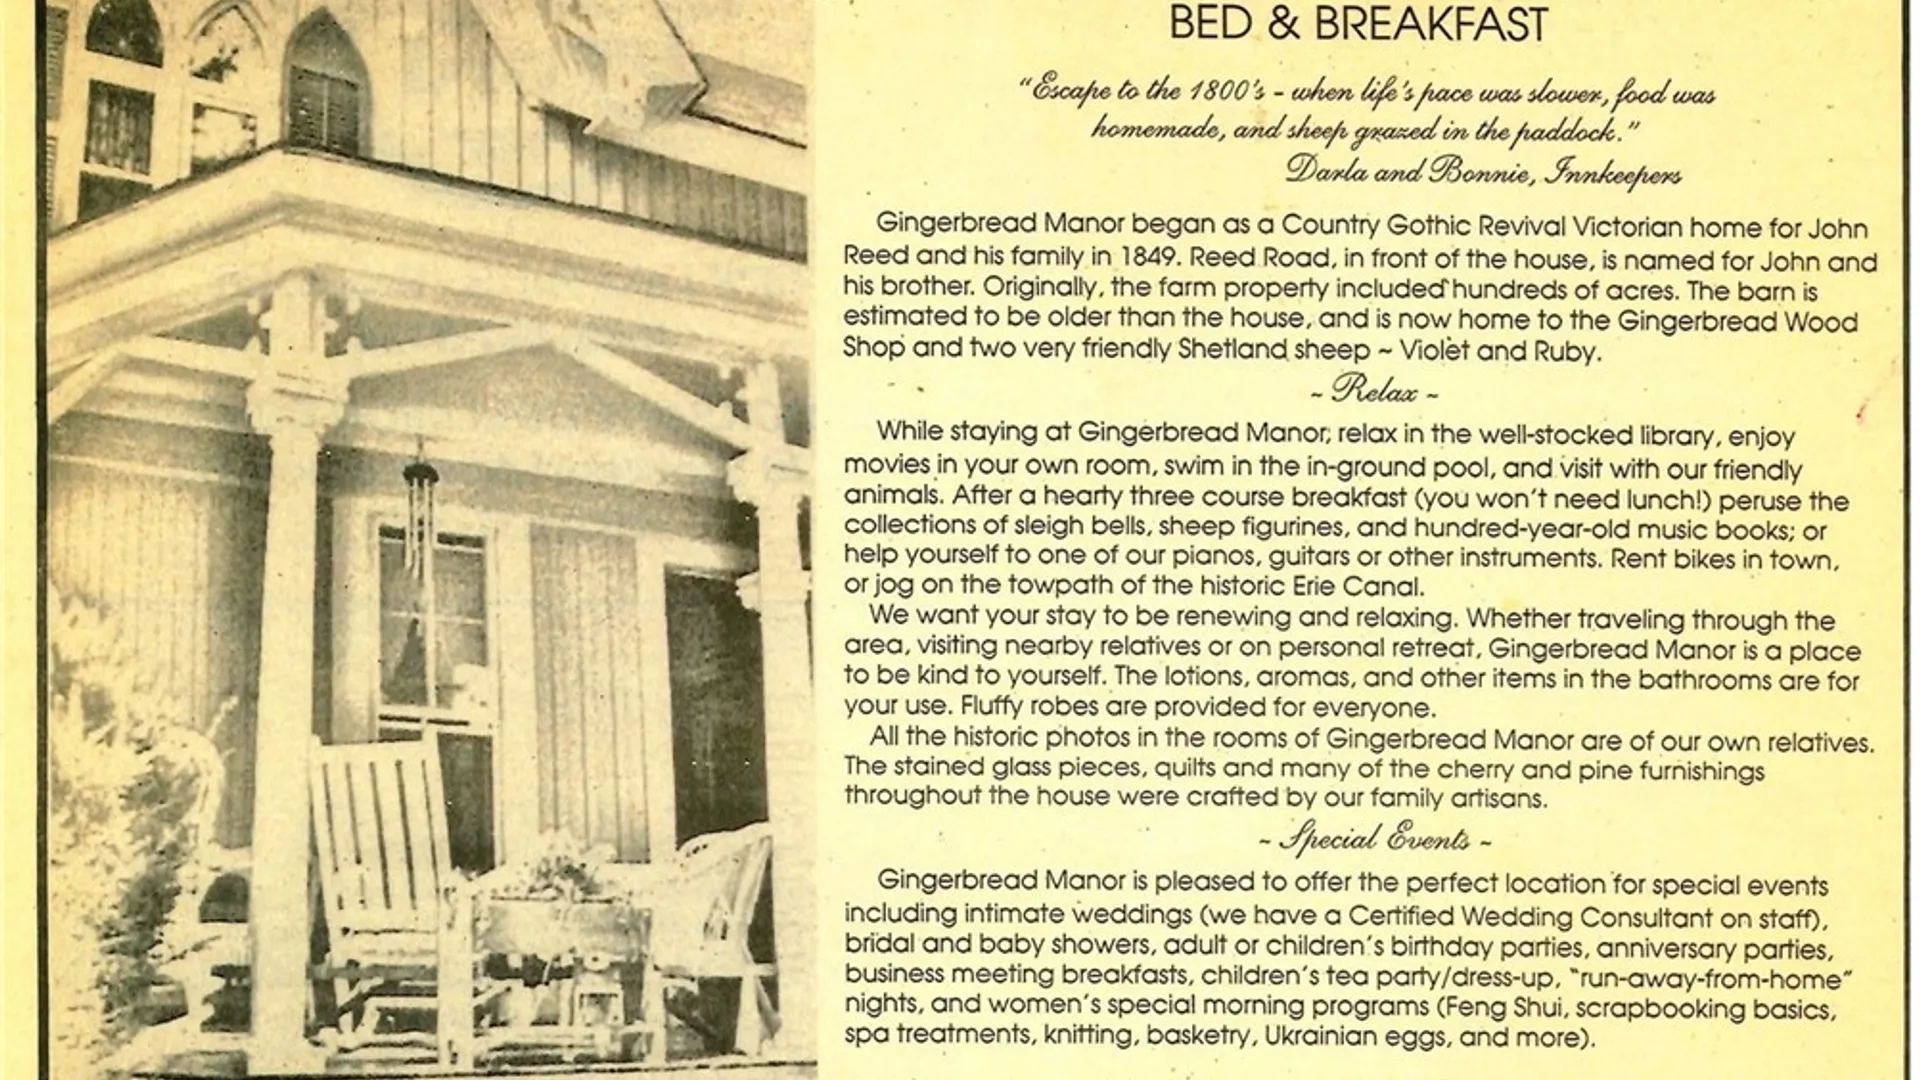 BED & BREAKFAST
"Escape to the 1800's - when life's pace was slower, food was
homemade, and sheep grazed in the paddock."
Darla and Bonnie, Innkeepers
Gingerbread Manor began as a Country Gothic Revival Victorian home for John
Reed and his family in 1849. Reed Road, in front of the house, is named for John and
his brother. Originally, the farm property included hundreds of acres. The barn is
estimated to be older than the house, and is now home to the Gingerbread Wood
Shop and two very friendly Shetland sheep ~ Violet and Ruby.
~ Relax ~
While staying at Gingerbread Manor, relax in the well-stocked library, enjoy
movies in your own room, swim in the in-ground pool, and visit with our friendly
animals. After a hearty three course breakfast (you won't need lunch!) peruse the
collections of sleigh bells, sheep figurines, and hundred-year-old music books; or
help yourself to one of our pianos, guitars or other instruments. Rent bikes in town,
or jog on the towpath of the historic Erie Canal.
We want your stay to be renewing and relaxing. Whether traveling through the
area, visiting nearby relatives or on personal retreat, Gingerbread Manor is a place
to be kind to yourself. The lotions, aromas, and other items in the bathrooms are for
your use. Fluffy robes are provided for everyone.
All the historic photos in the rooms of Gingerbread Manor are of our own relatives.
The stained glass pieces, quilts and many of the cherry and pine furnishings
throughout the house were crafted by our family artisans.
~ Special Events ~
Gingerbread Manor is pleased to offer the perfect location for special events
including intimate weddings (we have a Certified Wedding Consultant on staff),
bridal and baby showers, adult or children's birthday parties, anniversary parties,
business meeting breakfasts, children's tea party/dress-up, "run-away-from-home"
nights, and women's special morning programs (Feng Shui, scrapbooking basics,
spa treatments, knitting, basketry, Ukrainian eggs, and more).